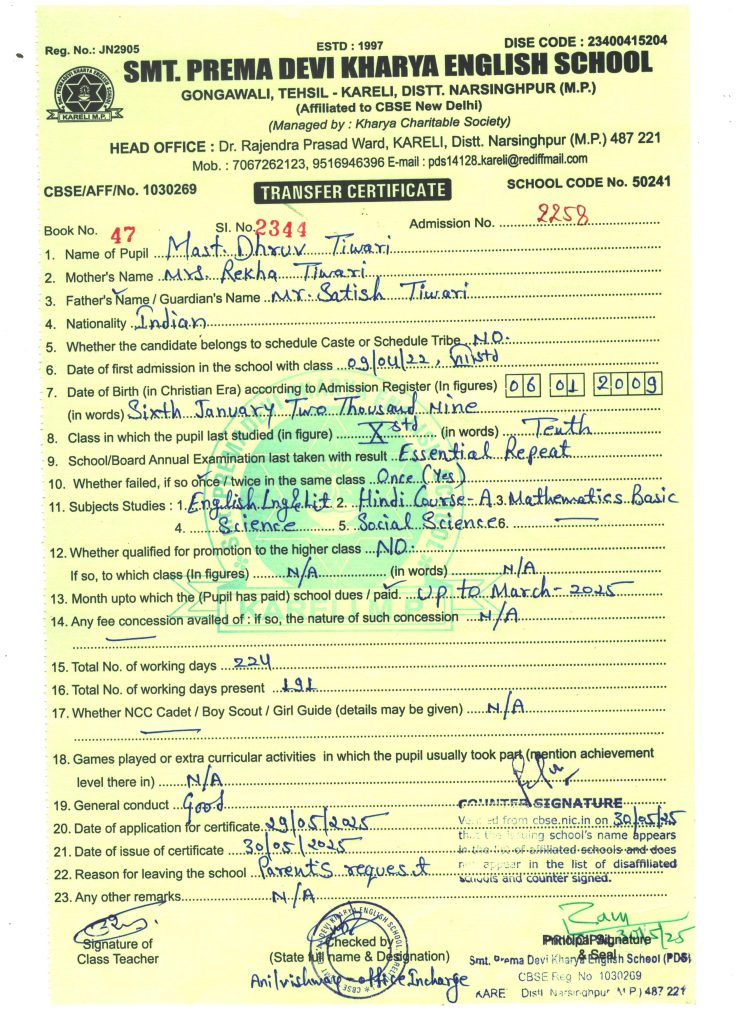 Reg. No.: JN2905 ESTD : 1997 DISE CODE : 23400415204
SMT. PREMA DEVI KHARYA ENGLISH SCHOOL
GONGAWALI, TEHSIL - KARELI, DISTT. NARSINGHPUR (M.P.)
(Affiliated to CBSE New Delhi)
(Managed by : Kharya Charitable Society)
KARELI M.P.
HEAD OFFICE : Dr. Rajendra Prasad Ward, KARELI, Distt. Narsinghpur (M.P.) 487 221
Mob. : 7067262123, 9516946396 E-mail : pds14128.kareli@rediffmail.com
CBSE/AFF/No. 1030269 TRANSFER CERTIFICATE SCHOOL CODE No. 50241
Book No. 47 Sl. No. 2344 Admission No. 2258
1. Name of Pupil Mast. Dhruv Tiwari
2. Mother's Name Mrs. Rekha Tiwari
3. Father's Name / Guardian's Name Mr. Satish Tiwari
4. Nationality Indian
5. Whether the candidate belongs to schedule Caste or Schedule Tribe NO.
6. Date of first admission in the school with class 09/04/22,
7. Date of Birth (in Christian Era) according to Admission Register (In figures) 06 01 2009
(in words) Sixth January Two Thousand Nine
8. Class in which the pupil last studied (in figure) X std (in words) Tenth
9. School/Board Annual Examination last taken with result Essential Repeat
10. Whether failed, if so once / twice in the same class Once (Yes)
11. Subjects Studies : 1. English Lng&Lit 2. Hindi Course-A 3. Mathematics Basic
4. Science 5. Social Science 6. —
12. Whether qualified for promotion to the higher class NO.
If so, to which class (In figures) N/A (in words) N/A
13. Month upto which the (Pupil has paid) school dues / paid. Up to March-2025
14. Any fee concession availed of : if so, the nature of such concession N/A
KARELI M.P.
15. Total No. of working days 224
16. Total No. of working days present 191
17. Whether NCC Cadet / Boy Scout / Girl Guide (details may be given) N/A
18. Games played or extra curricular activities in which the pupil usually took part (mention achievement
level there in) N/A
19. General conduct Good
COUNTER SIGNATURE
20. Date of application for certificate 29/05/2025
Verified from cbse.nic.in on 30/05/25
that the issuing school's name appears
21. Date of issue of certificate 30/05/2025
in the list of affiliated schools and does
not appear in the list of disaffiliated
22. Reason for leaving the school Parent's request
schools and counter signed.
23. Any other remarks N/A
30/5/25
Signature of Checked by Principal Signature
Class Teacher (State full name & Designation) & Seal
PRINCIPAL
Smt. Prema Devi Kharya English School (PDS)
Anil vishway - office Incharge
CBSE Reg No 1030269
KARE Distt. Narsinghpur M.P.) 487 221